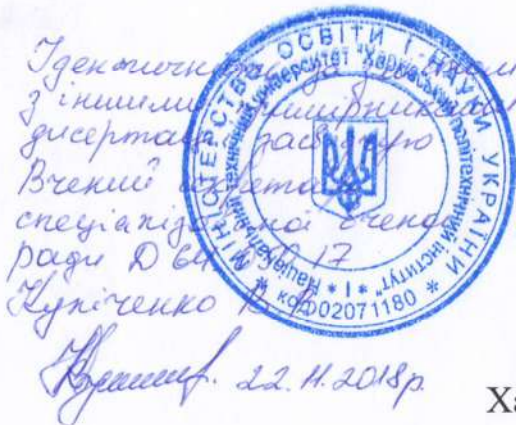 з іншими примірниками
дисертації засвідчую
Вчений секретар
спеціалізованої вченої
ради Д 64.050.17
22.11.2018р.
МІНІСТЕРСТВО ОСВІТИ І НАУКИ УКРАЇНИ * код 02071180 *
Національний технічний університет "Харківський політехнічний інститут" * 1 *
Ха